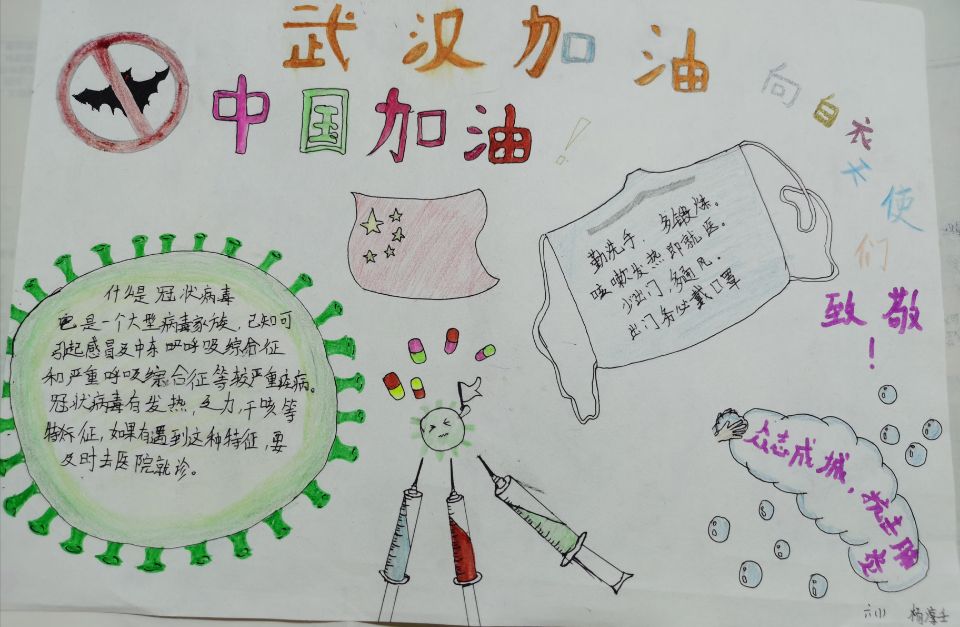 武汉加油
中国加油!
向白衣天使们
致敬!
勤洗手,多锻炼。
咳嗽发热即就医。
少出门,多通风。
出门务必戴口罩
什么是冠状病毒
它是一个大型病毒家族,已知可
引起感冒及中东呼吸综合征
和严重呼吸综合征等较严重疾病。
冠状病毒有发热,乏力,干咳等
特征,如果有遇到这种特征,要
及时去医院就诊。
众志成城,抗击
六(1)